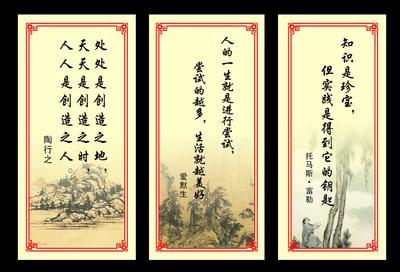 处处是创造之地，
天天是创造之时，
人人是创造之人。
陶行之
人的一生就是进行尝试，
尝试的越多，生活就越美好
爱默生
知识是珍宝，
但实践是得到它的钥匙
托马斯·富勒